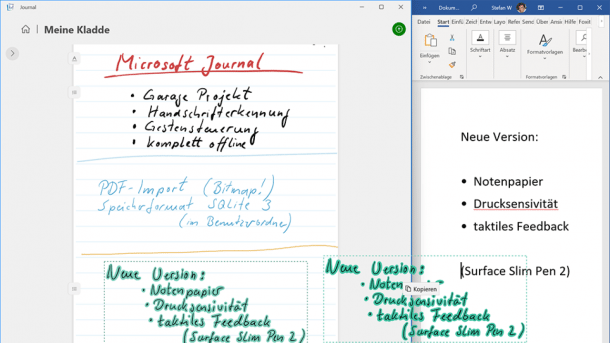 Journal
Meine Kladde
Microsoft Journal
• Garage Projekt
• Handschrifterkennung
• Gestensteuerung
• komplett offline
PDF-Import (Bitmap!)
Speicherformat SQLite 3
(im Benutzerordner)
Neue Version:
• Notenpapier
• Drucksensivität
• taktiles Feedback
(Surface Slim Pen 2)
Neue Version:
• Noten
• Drucksensivität
• taktiles Feedback
(Surface Slim Pen 2)
Kopieren
Dokum...
Stefan W
Datei Start Einfü Zeich Entw Layo Refer Send Über Ansi Hilfe Foxit
Einfügen
Schriftart
Absatz
Formatvorlagen
Bearb
Zwischenablage
Formatvorlagen
Neue Version:
• Notenpapier
• Drucksensivität
• taktiles Feedback
(Surface Slim Pen 2)